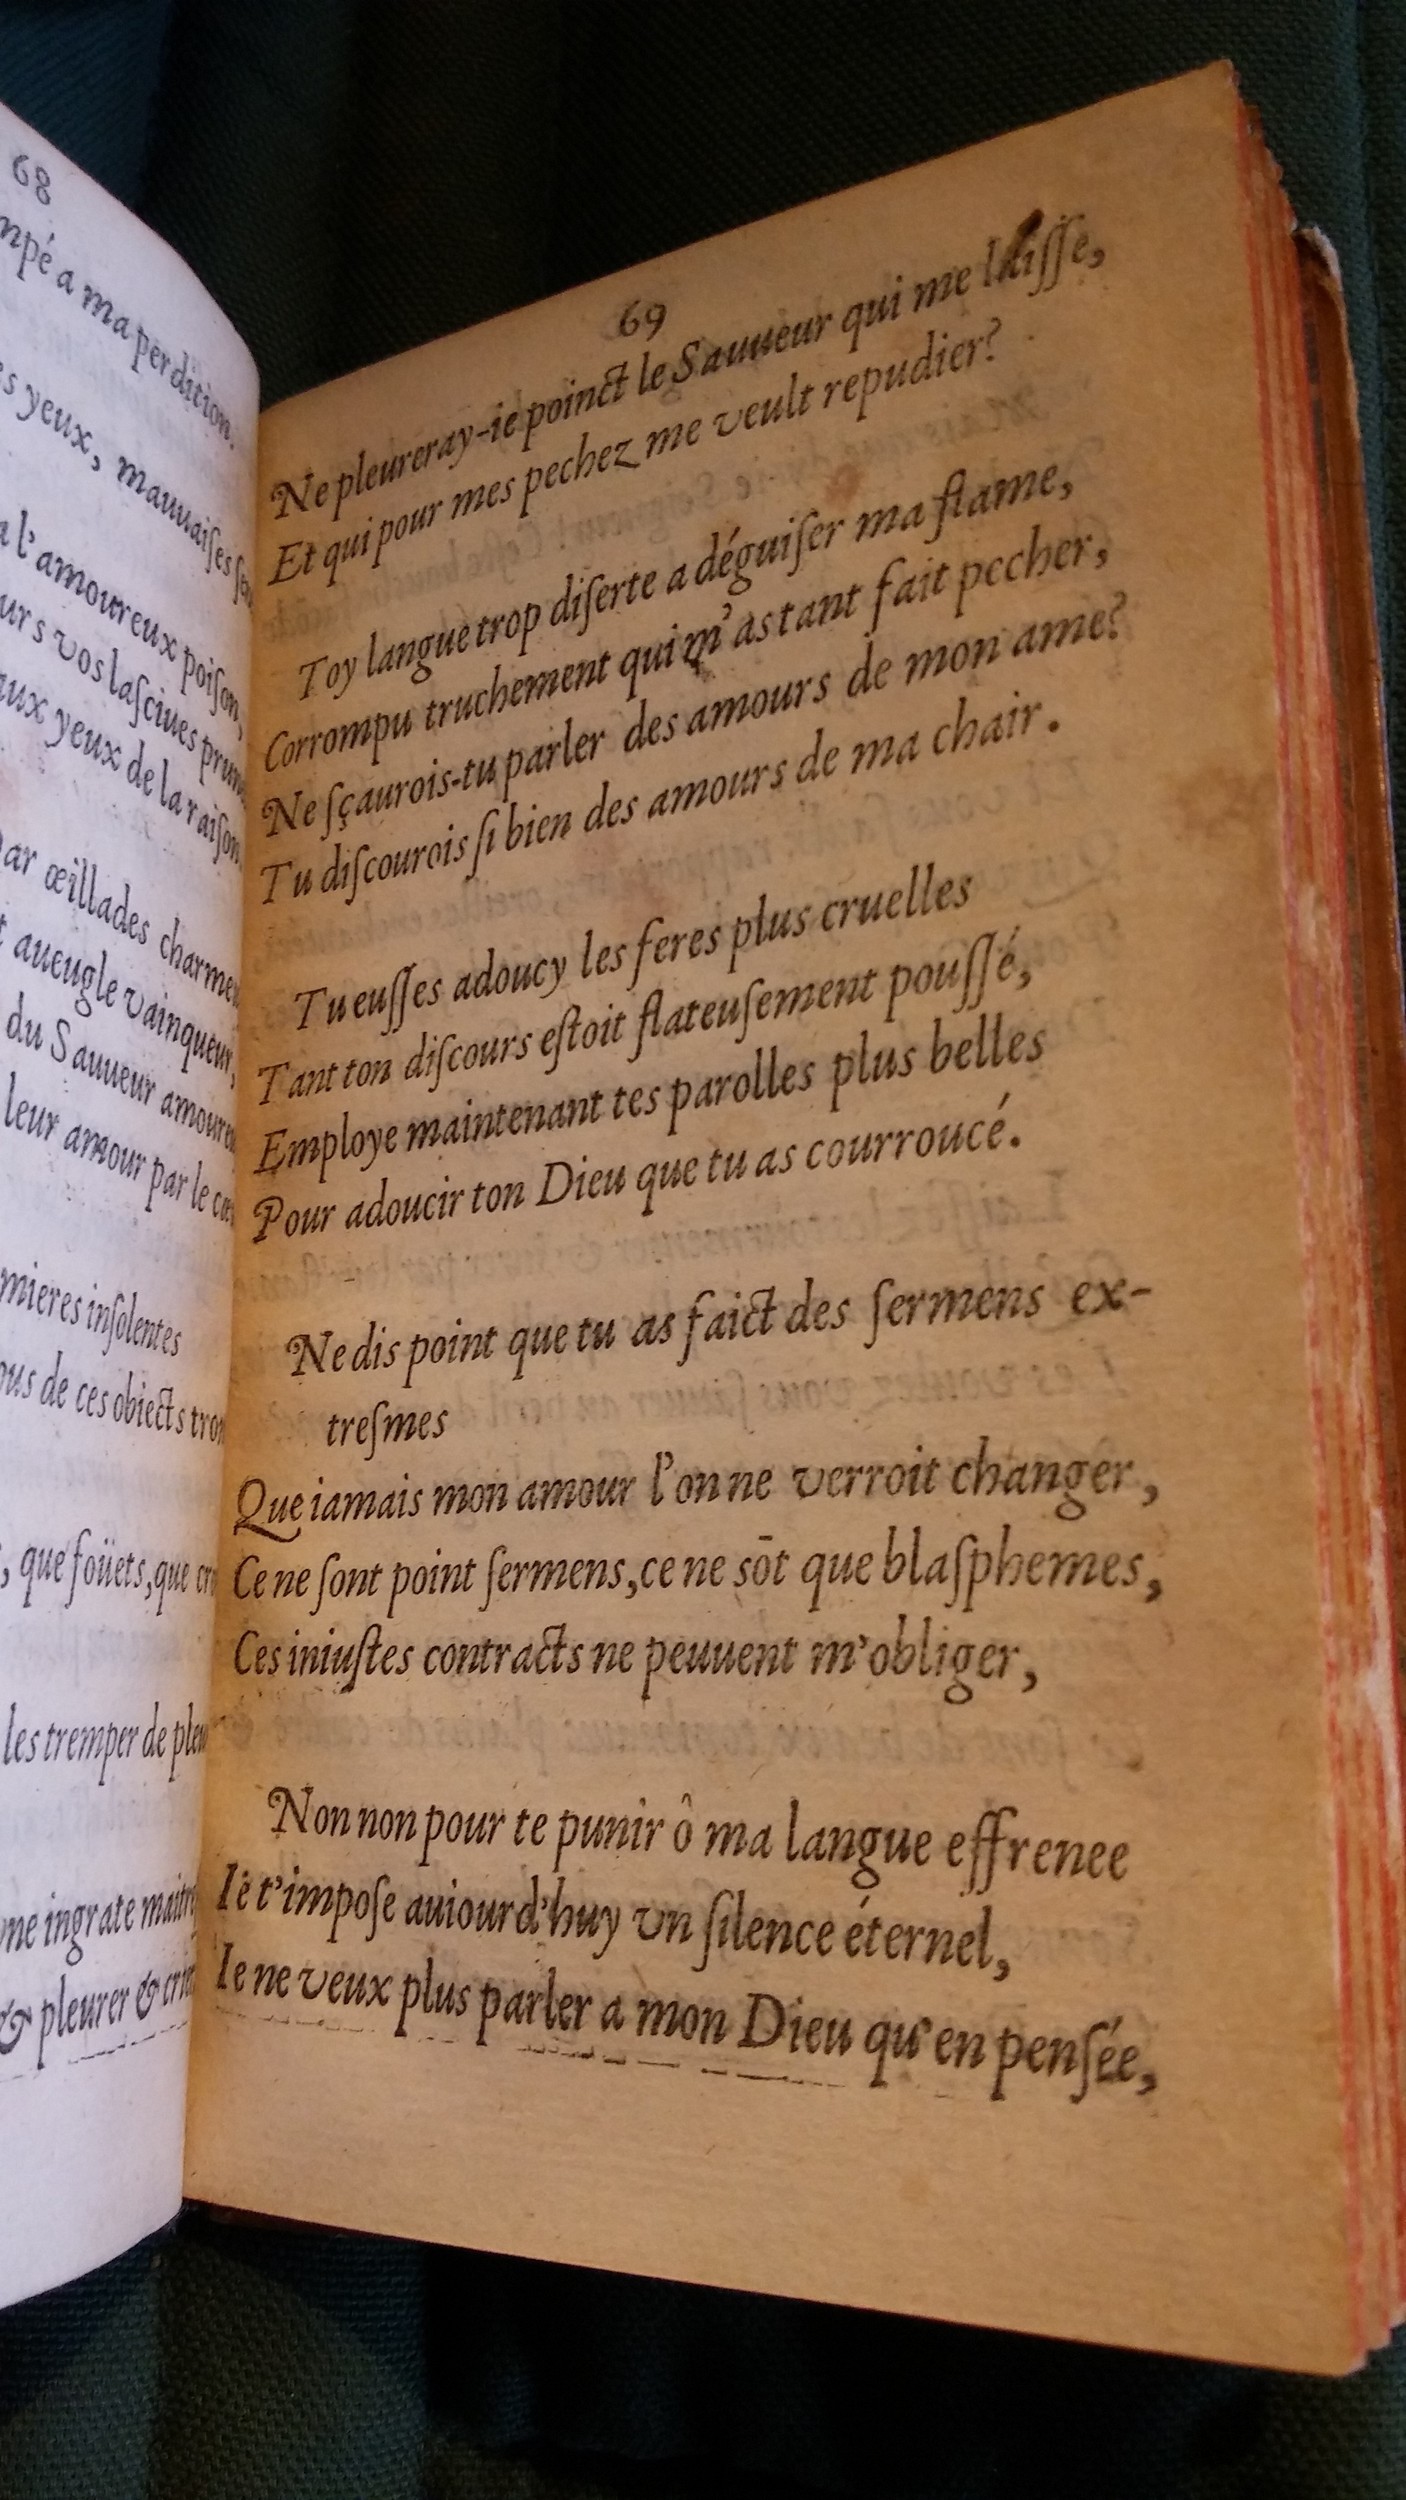 68
mpé a ma perdition.
yeux, mauuaiſes
l'amoureux poiſon,
vos laſciues
aux yeux de la raiſon
œillades
aueugle vainqueur,
du Sauueur
leur amour par le
inſolentes
de ces obiects
, que foüets, que
les tremper de
ingrate
& pleurer &
69
Ne pleureray-ie poinct le Sauueur qui me laiſſe,
Et qui pour mes pechez me veult repudier?
Toy langue trop diſerte a déguiſer ma flame,
Corrompu truchement qui m'as tant fait pecher,
Ne ſçaurois-tu parler des amours de mon ame?
Tu diſcourois ſi bien des amours de ma chair.
Tu euſſes adoucy les feres plus cruelles
Tant ton diſcours eſtoit flateuſement pouſſé,
Employe maintenant tes parolles plus belles
Pour adoucir ton Dieu que tu as courroucé.
Ne dis point que tu as faict des ſermens ex-
treſmes
Que iamais mon amour l'on ne verroit changer,
Ce ne ſont point ſermens, ce ne sōt que blaſphemes,
Ces iniuſtes contracts ne peuuent m'obliger,
Non non pour te punir ô ma langue effrenee
Ie t'impoſe auiourd'huy vn ſilence éternel,
Ie ne veux plus parler a mon Dieu qu'en penſée,